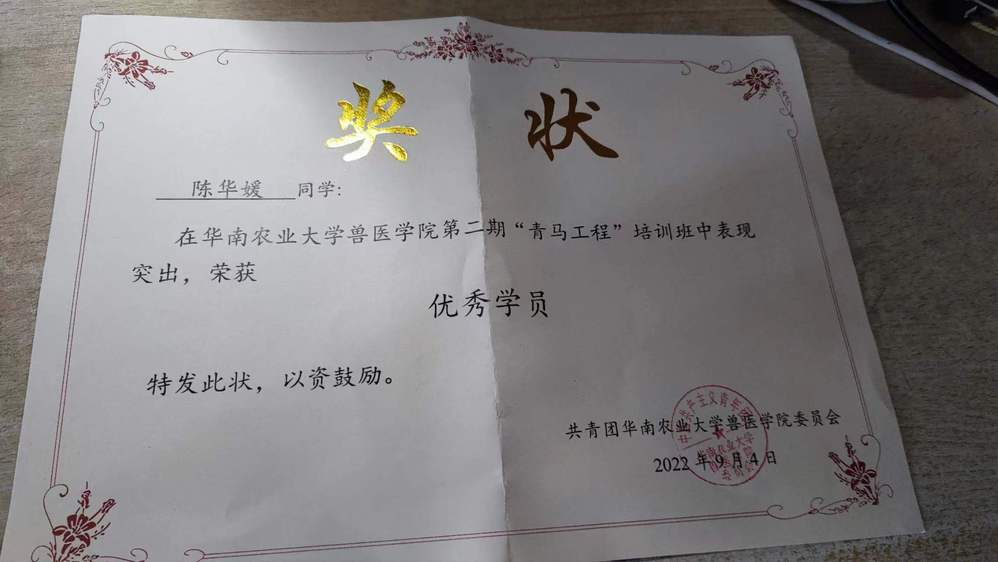 奖状
陈华媛 同学：
在华南农业大学兽医学院第二期“青马工程”培训班中表现
突出，荣获
优秀学员
特发此状，以资鼓励。
共青团华南农业大学兽医学院委员会
2022年9月4日